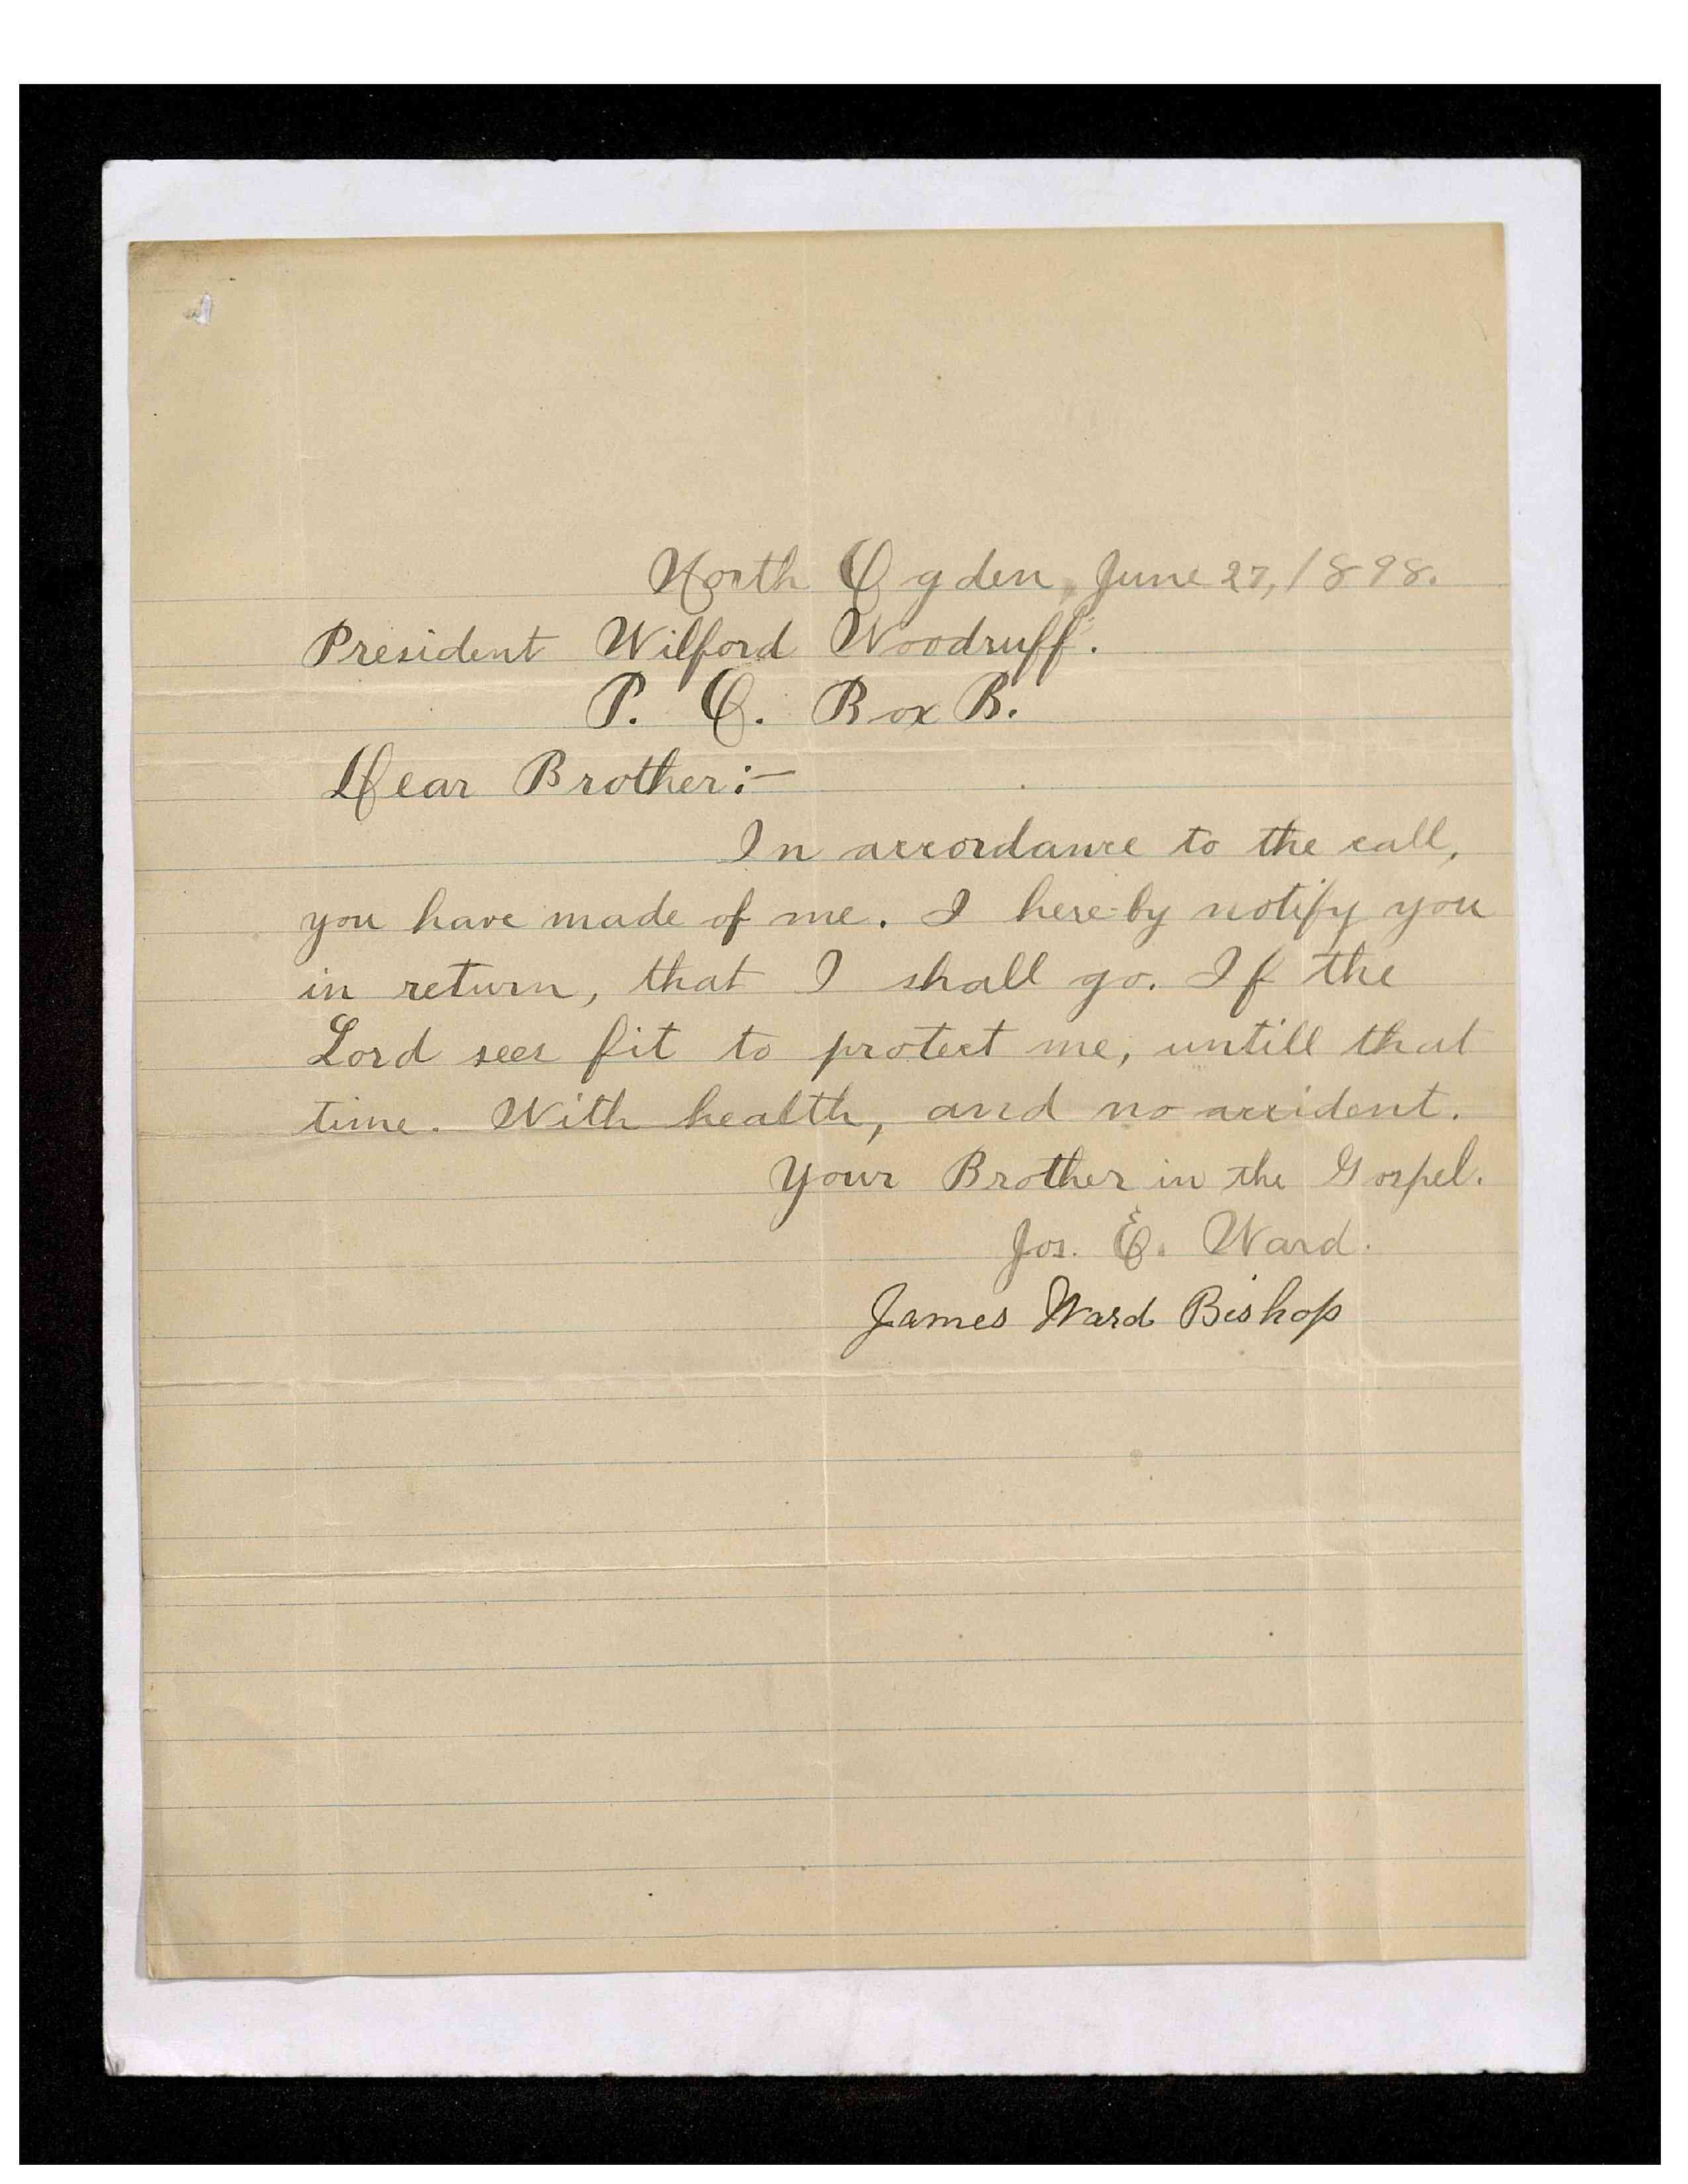 North Ogden, June 27, 1898.
President Wilford Woodruff.
P. O. Box B.
Dear Brother:—
In accordance to the call,
you have made of me. I here-by notify you
in return, that I shall go. If the
Lord sees fit to protect me, untill that
time. With health, and no accident.
Your Brother in the Gospel.
Jos. E. Ward.
James Ward Bishop